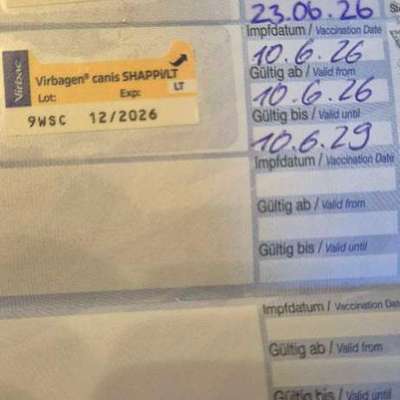 23.06.26
Impfdatum / Vaccination Date
10.6.26
Gültig ab / Valid from
10.6.26
Gültig bis / Valid until
10.6.29
Virbac
Virbagen® canis SHAPPi/LT
Lot: Exp: LT
9WSC 12/2026
Impfdatum / Vaccination Date
Gültig ab / Valid from
Gültig bis / Valid until
Impfdatum / Vaccination Date
Gültig ab / Valid from
Gültig bis / Valid until